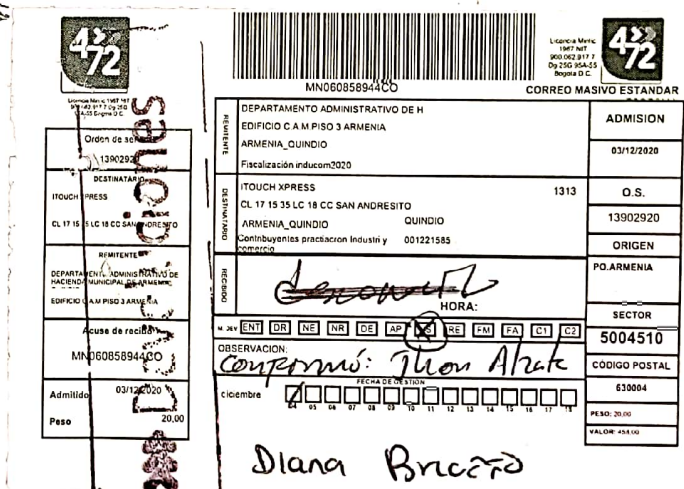 472
Orden de servicio
13902920
DESTINATARIO
ITOUCH XPRESS
CL 17 15 35 LC 18 CC SAN ANDRESITO
ARMENIA_QUINDIO
REMITENTE
DEPARTAMENTO ADMINISTRATIVO DE
HACIENDA MUNICIPAL DE ARMENIA
EDIFICIO C.A.M PISO 3 ARMENIA
Acuse de recibo
MN060858944CO
Admitido 03/12/2020
Peso 20,00
MN060858944CO
Licencia Mintic
1967 NIT
900.062.917 7
Dg 25G 95A-55
Bogota D.C.
472
CORREO MASIVO ESTANDAR
REMITENTE
DEPARTAMENTO ADMINISTRATIVO DE H
EDIFICIO C.A.M PISO 3 ARMENIA
ARMENIA_QUINDIO
Fiscalización inducom2020
DESTINATARIO
ITOUCH XPRESS 1313
CL 17 15 35 LC 18 CC SAN ANDRESITO
ARMENIA_QUINDIO QUINDIO
Contribuyentes practiacron Industri y 001221585
comercio
RECIBIDO
HORA:
M. DEV ENT DR NE NR DE AP RE FM FA C1 C2
OBSERVACION:
Confirmó: Jhon Alzate
FECHA DE GESTIÓN
ciciembre
04 05 06 07 08 09 10 11 12 13 14 15 16 17 18
Diana Briceño
ADMISION
03/12/2020
O.S.
13902920
ORIGEN
PO.ARMENIA
SECTOR
5004510
CÓDIGO POSTAL
630004
PESO: 20,00
VALOR: 454.00